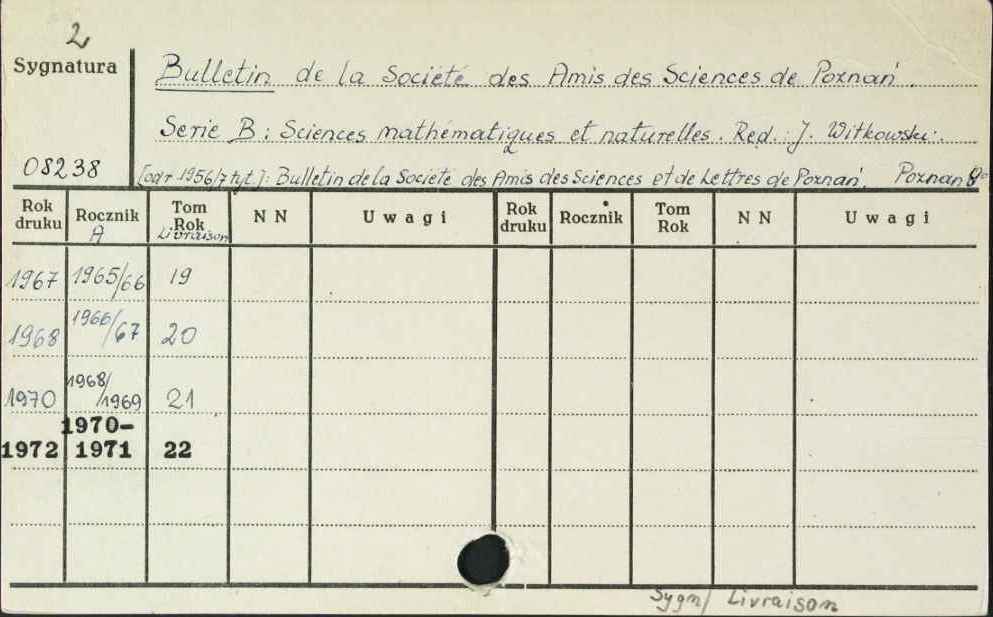 2
Sygnatura
Bulletin de la Société des Amis des Sciences de Poznań.
Serie B: Sciences mathématiques et naturelles. Red.: J. Witkowski.
08238
[od r. 1956/7 tyt.]: Bulletin de la Société des Amis des Sciences et de Lettres de Poznań. Poznań 8°
Rok druku Rocznik A Tom Rok Livraison N N Uwagi Rok druku Rocznik Tom Rok N N Uwagi
1967 1965/66 19
1968 1966/67 20
1970 1968/1969 21
1972 1970-1971 22
Sygn/ Livraison